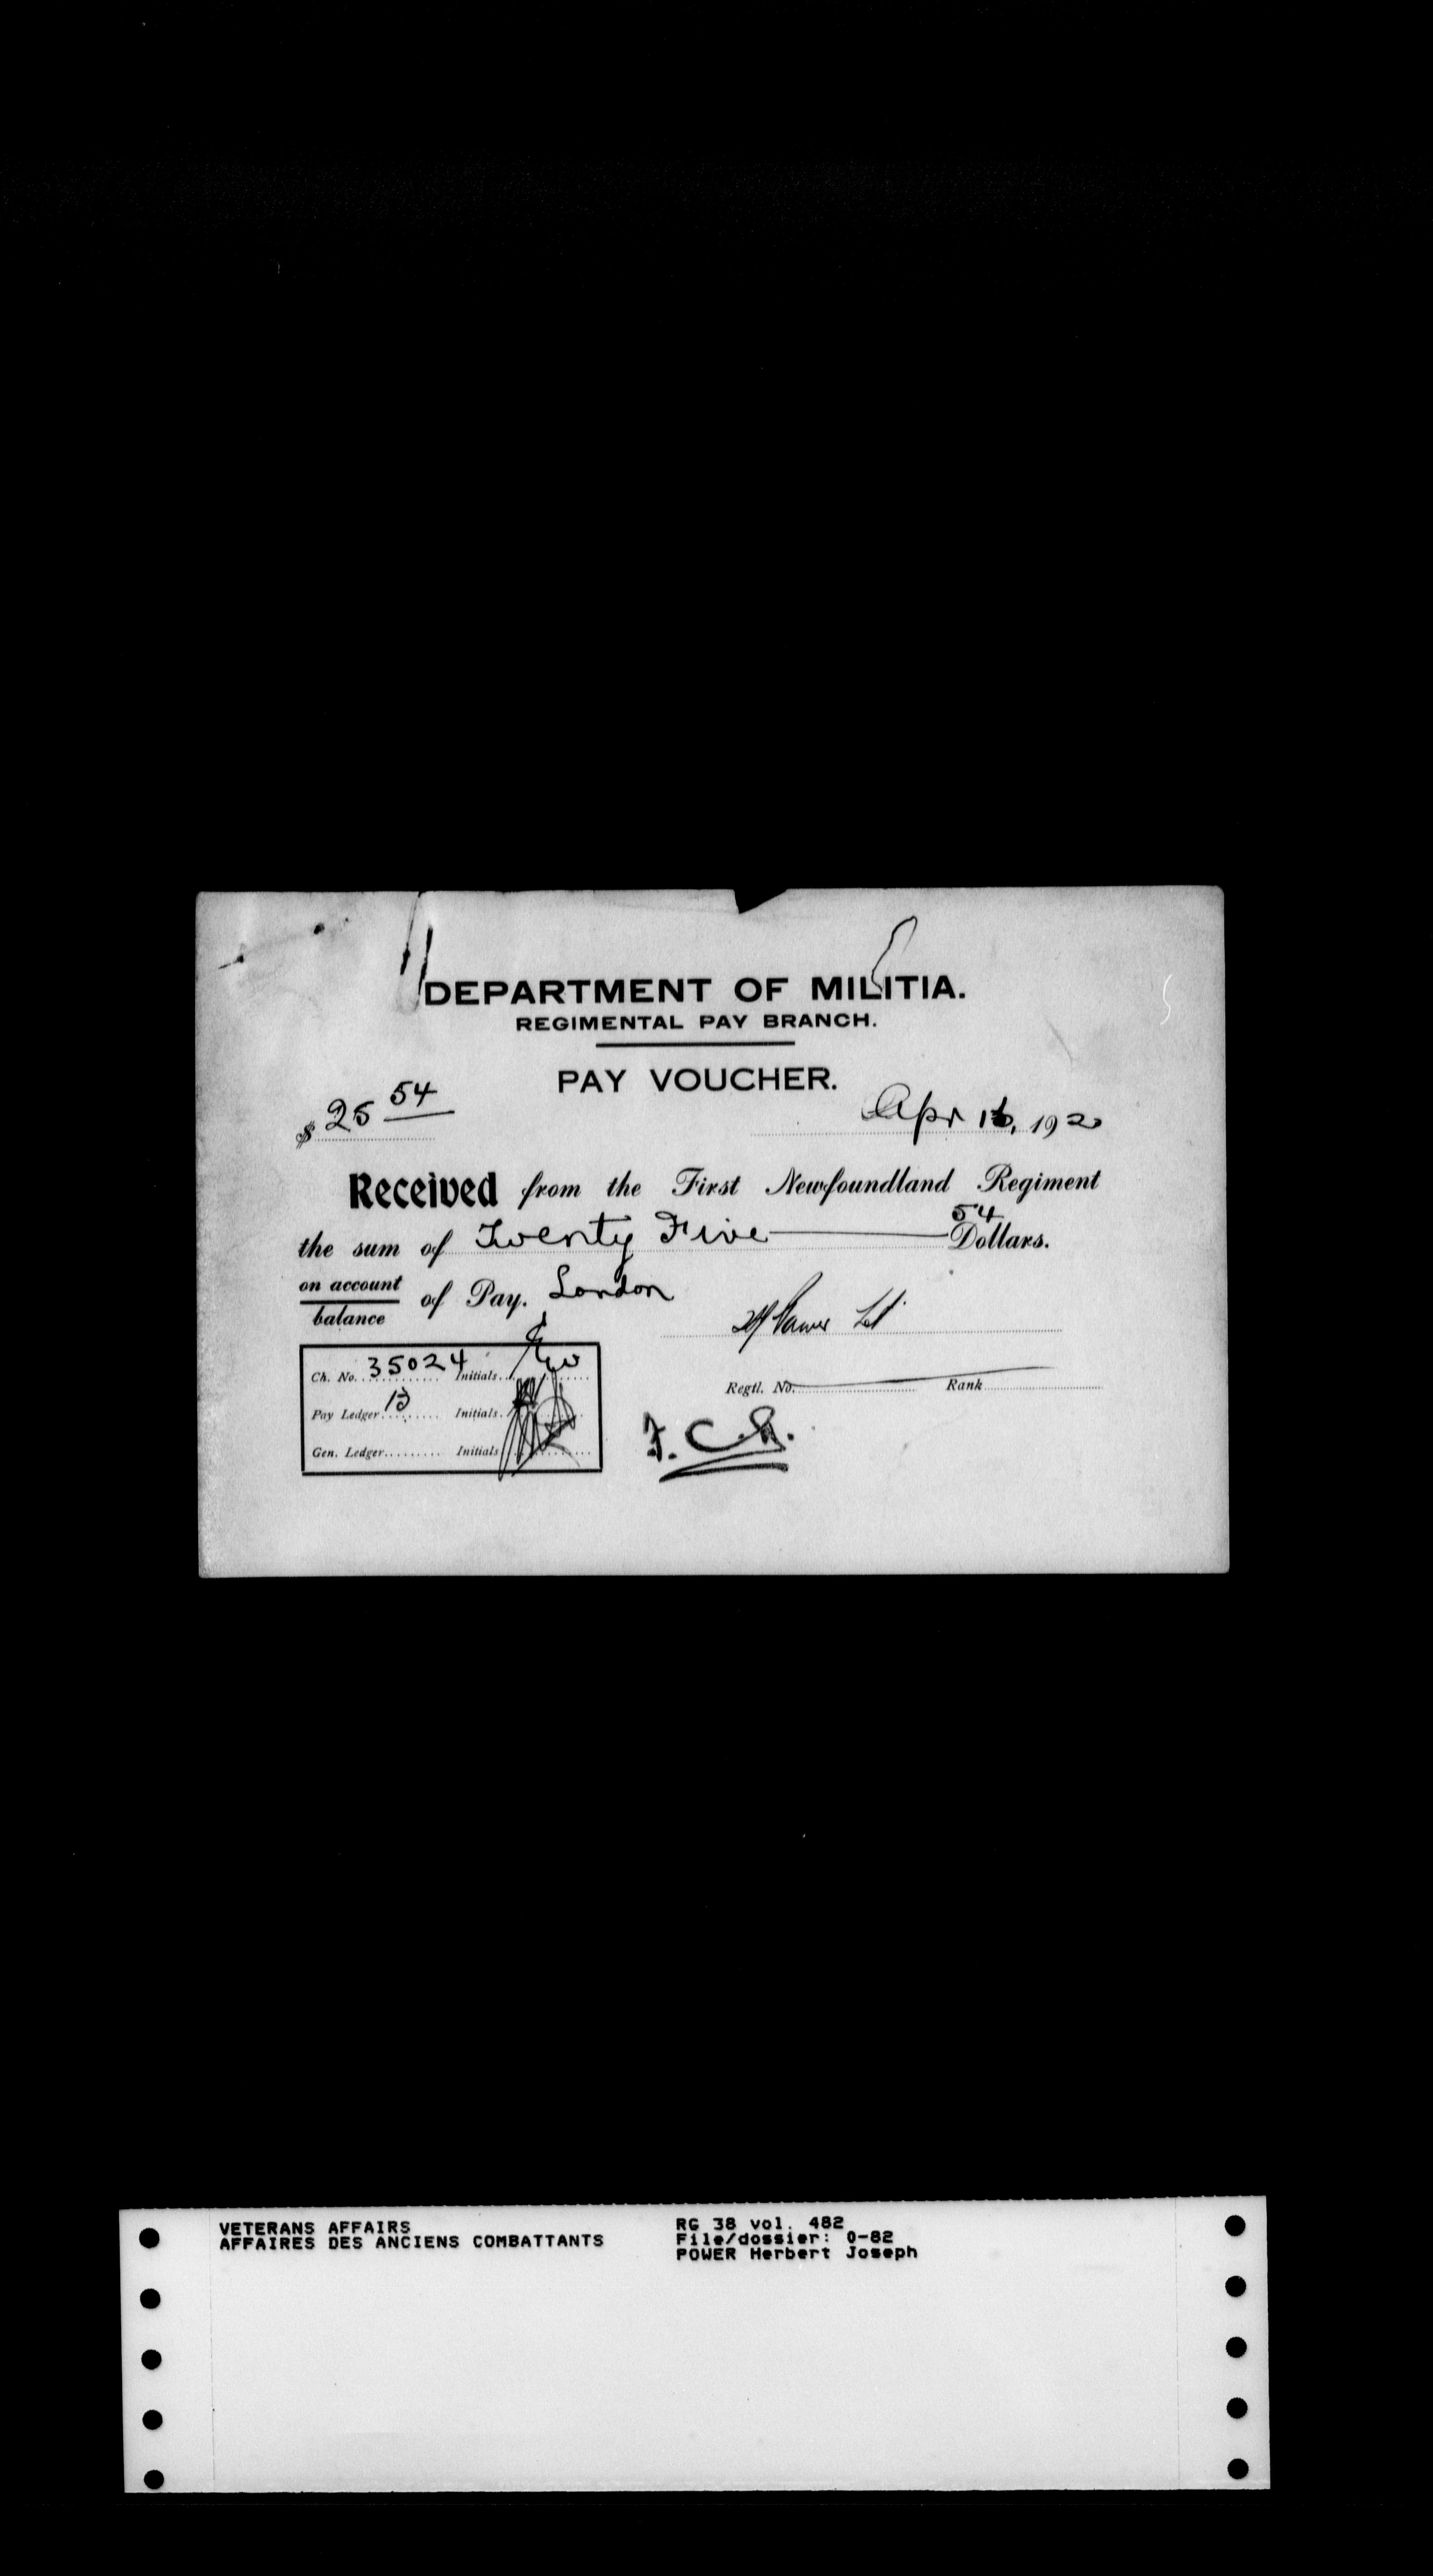 DEPARTMENT OF MILITIA.
REGIMENTAL PAY BRANCH.
PAY VOUCHER.
$ 25 54
Apr 16, 1920
Received from the First Newfoundland Regiment
the sum of Twenty Five 54 Dollars.
on account
balance of Pay. London
Power Lt
Ch. No. 35024 Initials
Pay Ledger 13 Initials
Gen. Ledger Initials
Regtl. No. Rank
VETERANS AFFAIRS
AFFAIRES DES ANCIENS COMBATTANTS
RG 38 vol. 482
File/dossier: 0-82
POWER Herbert Joseph